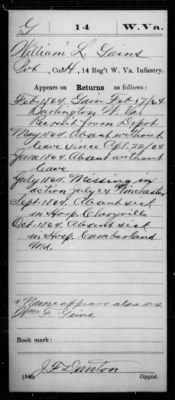 G 14 W. Va.
William L. Gains
Pvt., Co. H, 14 Reg't W. Va. Infantry.
Appears on Returns as follows:
Feby 1864. Gain Feb 17/64
Burlington W. Va.
Recruit from Depot
May 1864. Absent without
leave since Apl. 29/64
June 1864. Absent without
leave
July 1864. Missing in
action July 24 Winchester
Sept. 1864. Absent sick
in Hosp.
Oct. 1864. Absent sick
in Hosp. Cumberland
Md.
Name appears also as
Gains
Book mark:
Copyist.